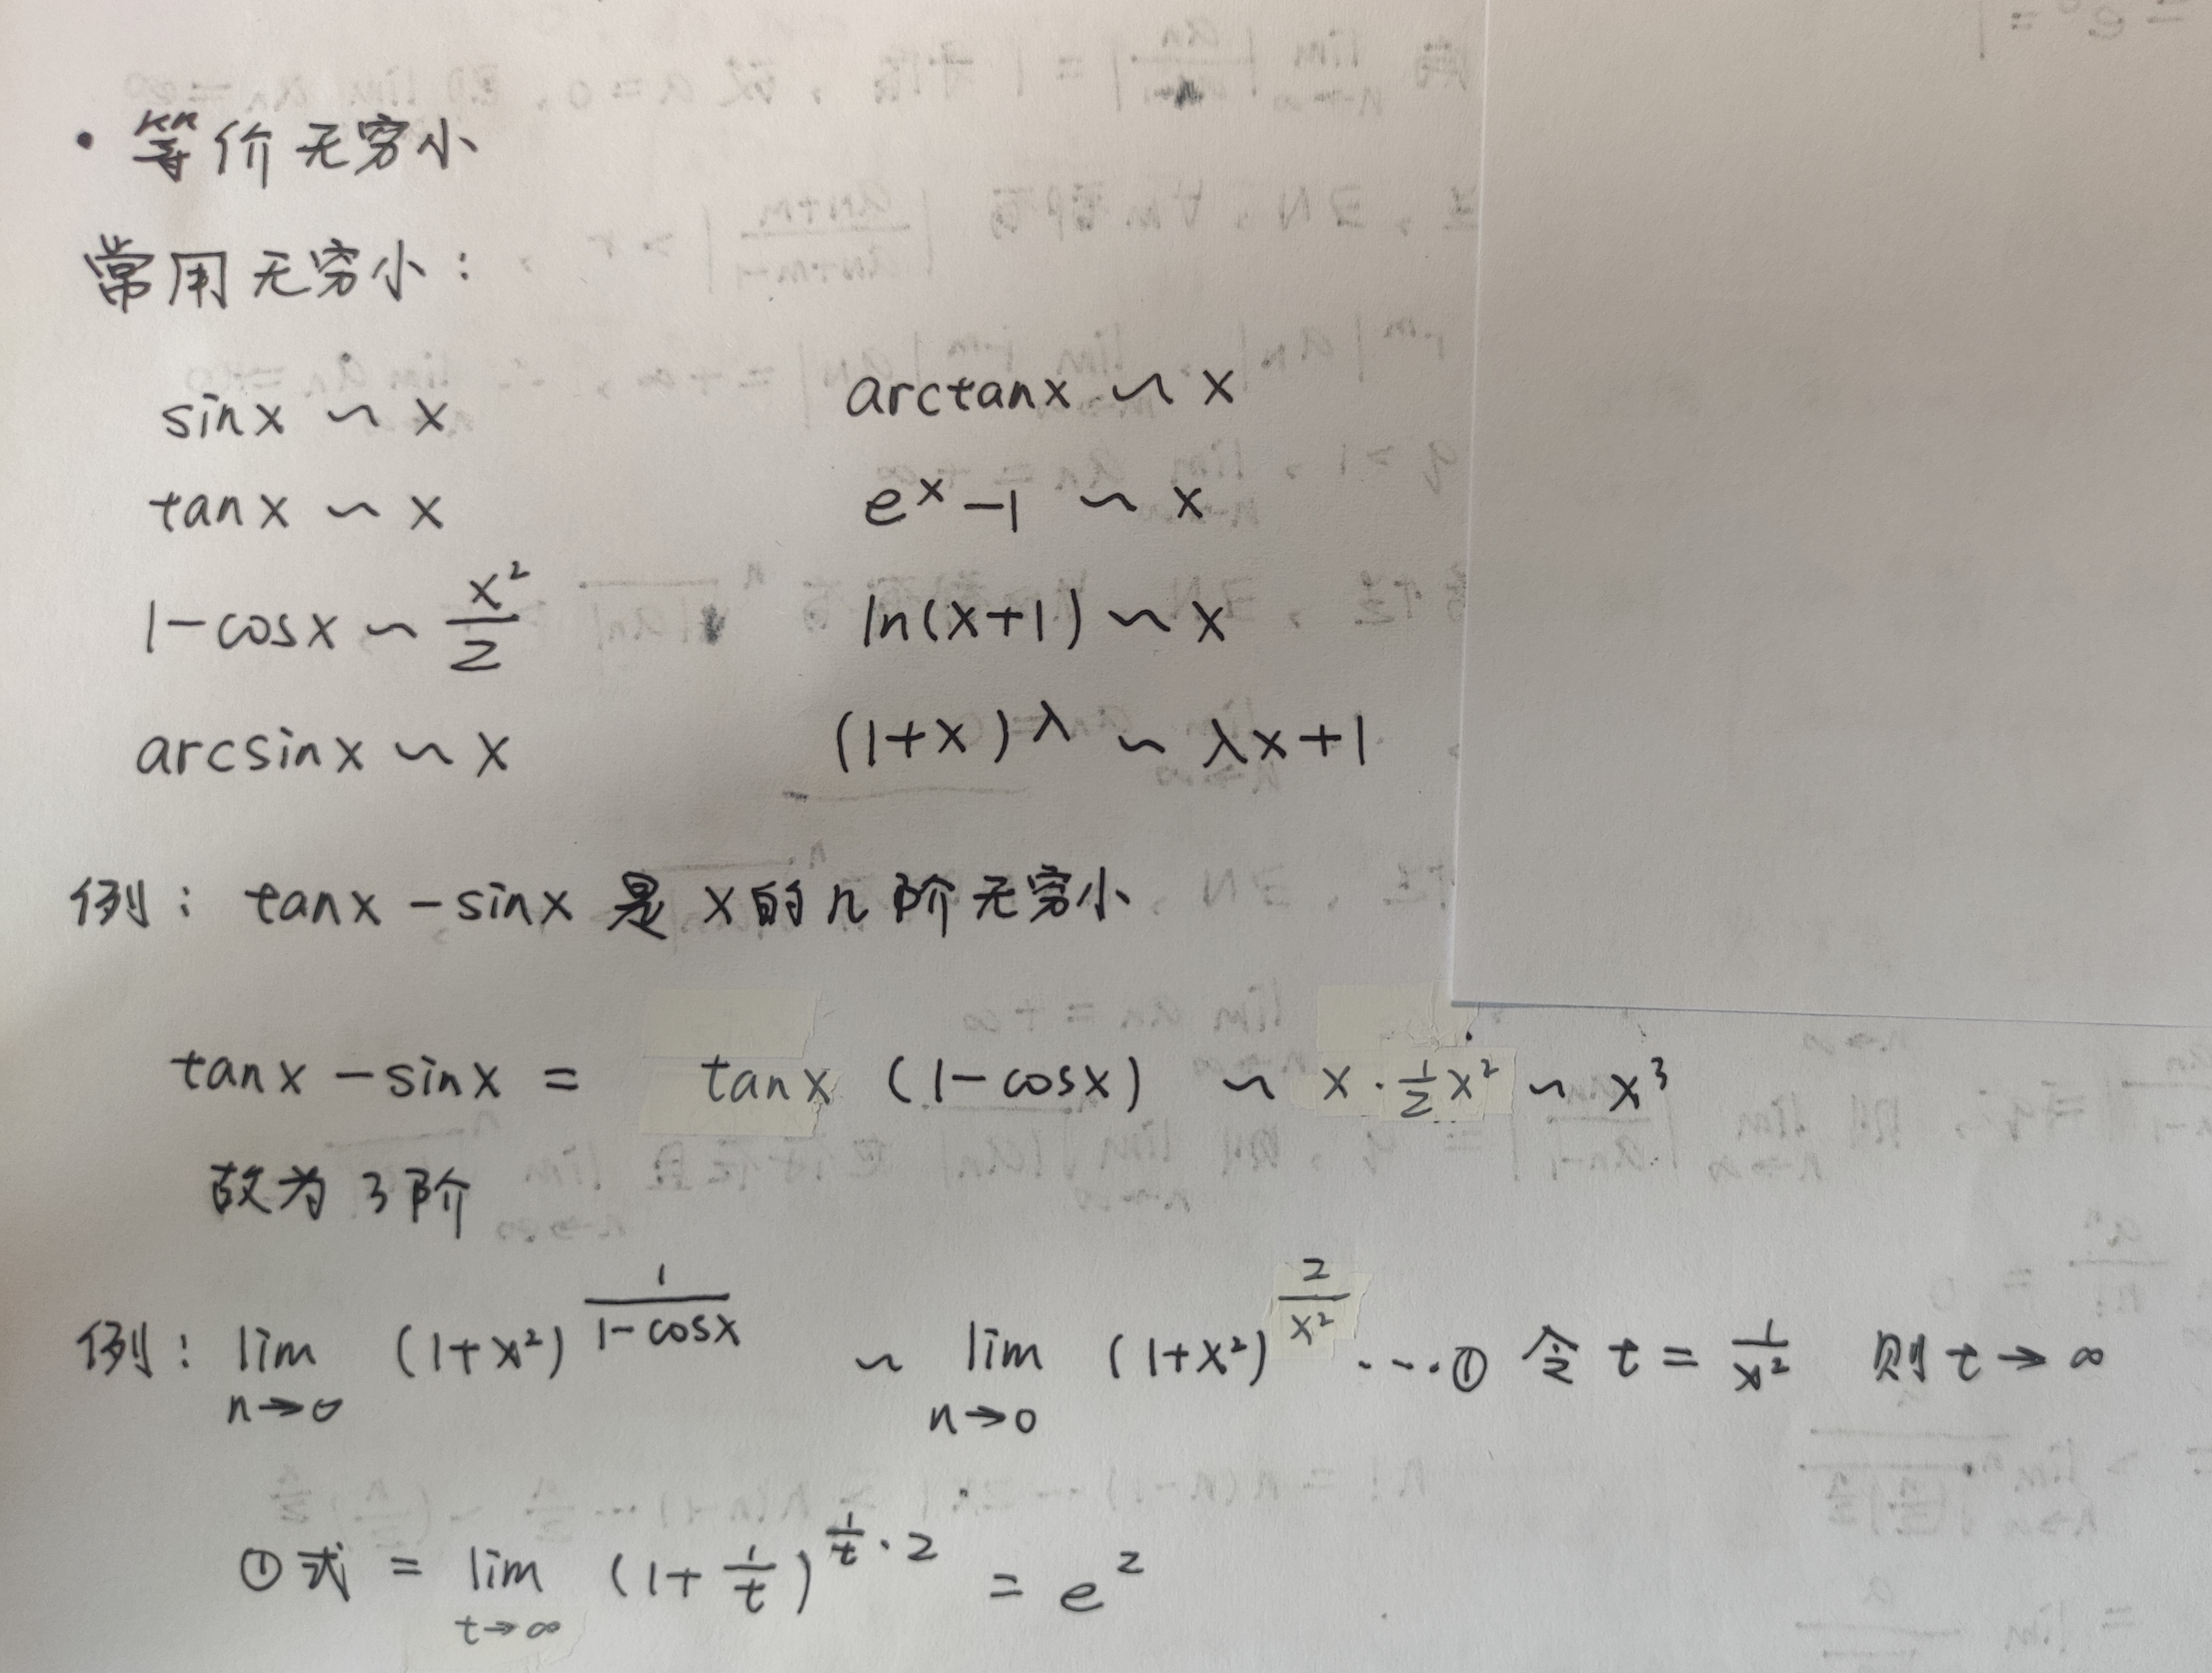 · 等价无穷小
常用无穷小:
sinx ~ x    arctanx ~ x
tanx ~ x    e^x -1 ~ x
1-cosx ~ x²/2    ln(x+1) ~ x
arcsinx ~ x    (1+x)^λ ~ λx+1
例: tanx -sinx 是 x的几阶无穷小
tanx -sinx = tanx (1-cosx) ~ x · ½x² ~ x³
故为3阶
例: lim_{n→0} (1+x²)^{1/(1-cosx)} ~ lim_{n→0} (1+x²)^{2/x²} ····① 令 t = 1/x² 则 t → ∞
①式 = lim_{t→∞} (1+1/t)^{1/t · 2} = e²